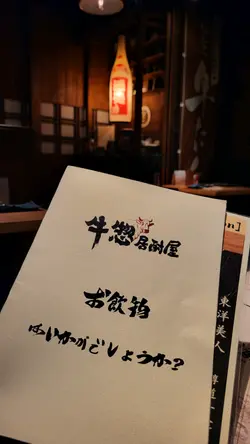 牛惣居酒屋
お飲物
はいかがでしょうか?
東洋美人